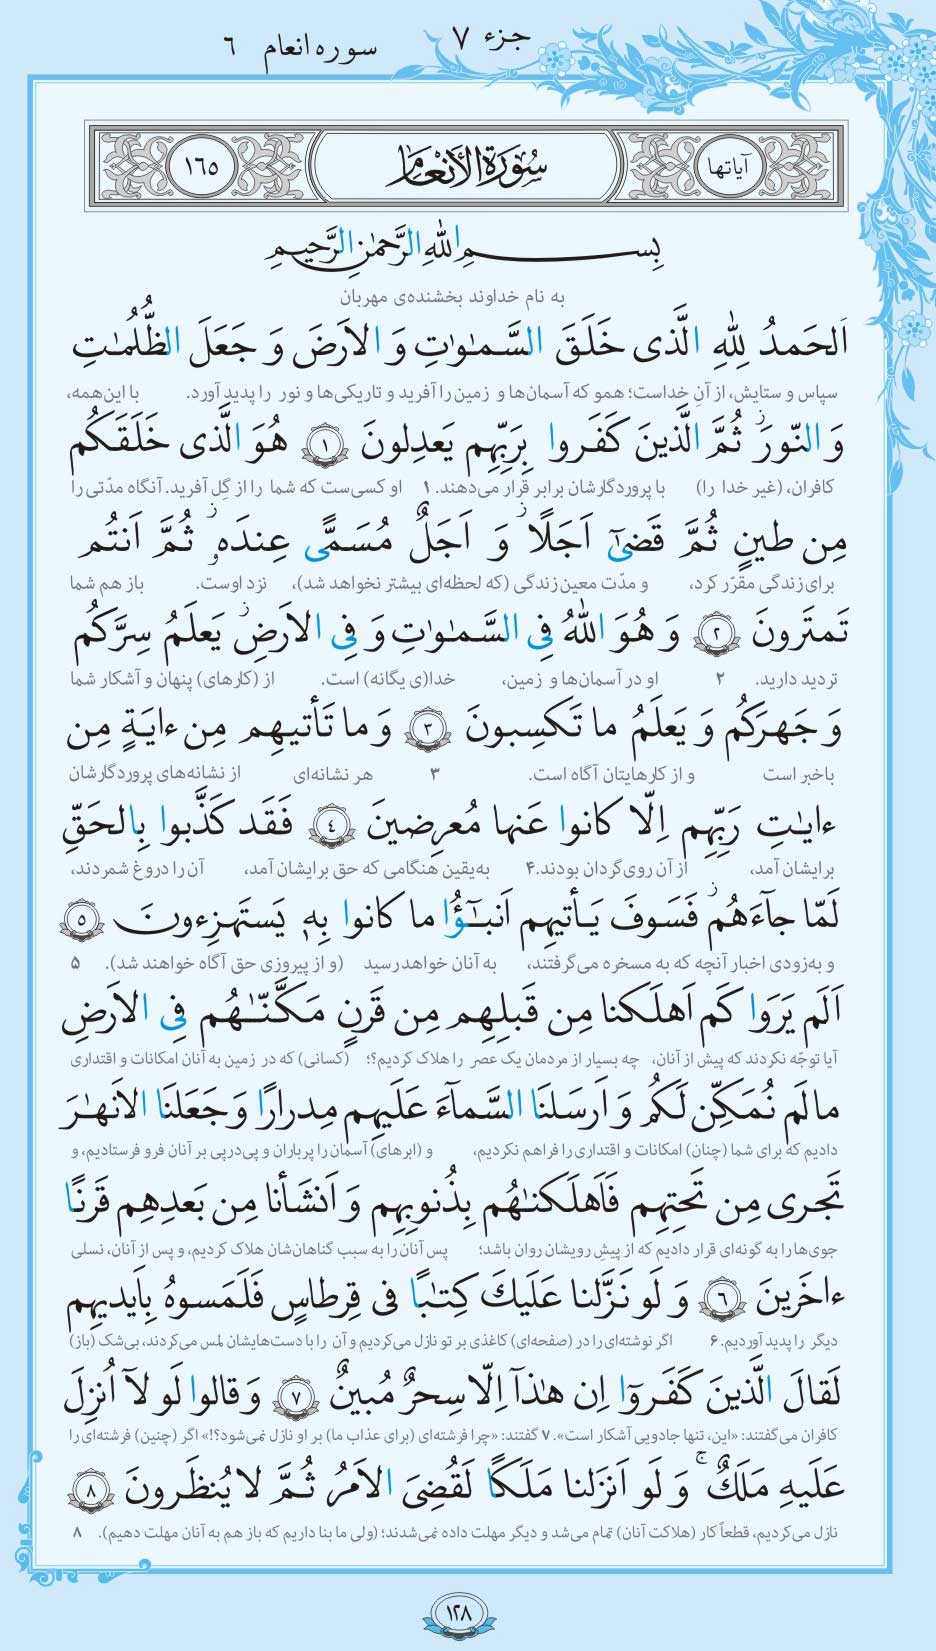 جزء ۷ سوره انعام ۶
آیاتها سُورَةُ الأَنْعَامِ ۱۶۵
بِسمِ اللهِ الرَّحمٰنِ الرَّحیمِ
به نام خداوند بخشنده‌ی مهربان
اَلحَمدُ لِلّٰهِ الَّذی خَلَقَ السَّمٰوٰتِ وَ الاَرضَ وَ جَعَلَ الظُّلُمٰتِ
سپاس و ستایش، از آنِ خداست؛ همو که آسمان‌ها و زمین را آفرید و تاریکی‌ها و نور را پدید آورد. با این‌همه،
وَ النّورَ ز ثُمَّ الَّذینَ کَفَروا بِرَبِّهِم یَعدِلونَ ۱ هُوَ الَّذی خَلَقَکُم
کافران، (غیر خدا را) با پروردگارشان برابر قرار می‌دهند. ۱ او کسی‌ست که شما را از گِل آفرید. آنگاه مدّتی را
مِن طینٍ ثُمَّ قَضیٰٓ اَجَلًا ز وَ اَجَلٌ مُسَمًّی عِندَهٗ ز ثُمَّ اَنتُم
برای زندگی مقرّر کرد، و مدّت معین زندگی (که لحظه‌ای بیشتر نخواهد شد)، نزد اوست. باز هم شما
تَمتَرونَ ۲ وَ هُوَ اللهُ فِی السَّمٰوٰتِ وَ فِی الاَرضِ ز یَعلَمُ سِرَّکُم
تردید دارید. ۲ او در آسمان‌ها و زمین، خدا(ی یگانه) است. از (کارهای) پنهان و آشکار شما
وَ جَهرَکُم وَ یَعلَمُ ما تَکسِبونَ ۳ وَ ما تَأتیهِم مِن ءایَةٍ مِن
باخبر است و از کارهایتان آگاه است. ۳ هر نشانه‌ای از نشانه‌های پروردگارشان
ءایٰتِ رَبِّهِم اِلّا کانوا عَنها مُعرِضینَ ۴ فَقَد کَذَّبوا بِالحَقِّ
برایشان آمد، از آن روی‌گردان بودند.۴ به‌یقین هنگامی که حق برایشان آمد، آن را دروغ شمردند،
لَمّا جآءَهُم ز فَسَوفَ یَأتیهِم اَنبٰٓؤُا ما کانوا بِهٖ یَستَهزِءونَ ۵
و به‌زودی اخبار آنچه که به مسخره می‌گرفتند، به آنان خواهد رسید (و از پیروزی حق آگاه خواهند شد). ۵
اَلَم یَرَوا کَم اَهلَکنا مِن قَبلِهِم مِن قَرنٍ مَکَّنّٰهُم فِی الاَرضِ
آیا توجّه نکردند که پیش از آنان، چه بسیار از مردمان یک عصر را هلاک کردیم؟؛ (کسانی) که در زمین به آنان امکانات و اقتداری
ما لَم نُمَکِّن لَکُم وَ اَرسَلنَا السَّمآءَ عَلَیهِم مِدرارًا وَ جَعَلنَا الاَنهٰرَ
دادیم که برای شما (چنان) امکانات و اقتداری را فراهم نکردیم، و (ابرهای) آسمان را پرباران و پی‌درپی بر آنان فرو فرستادیم، و
تَجری مِن تَحتِهِم فَاَهلَکنٰهُم بِذُنوبِهِم وَ اَنشَأنا مِن بَعدِهِم قَرنًا
جوی‌ها را به گونه‌ای قرار دادیم که از پیشِ رویشان روان باشد؛ پس آنان را به سبب گناهان‌شان هلاک کردیم، و پس از آنان، نسلی
ءاخَرینَ ۶ وَ لَو نَزَّلنا عَلَیكَ کِتٰبًا فی قِرطاسٍ فَلَمَسوهُ بِاَیدیهِم
دیگر را پدید آوردیم.۶ اگر نوشته‌ای را در (صفحه‌ای) کاغذی بر تو نازل می‌کردیم و آن را با دست‌هایشان لمس می‌کردند، بی‌شک (باز)
لَقالَ الَّذینَ کَفَروٓا اِن هٰذآ اِلّا سِحرٌ مُبینٌ ۷ وَ قالوا لَو لآ اُنزِلَ
کافران می‌گفتند: «این، تنها جادویی آشکار است». ۷ گفتند: «چرا فرشته‌ای (برای عذاب ما) بر او نازل نمی‌شود؟!» اگر (چنین) فرشته‌ای را
عَلَیهِ مَلَكٌ ج وَ لَو اَنزَلنا مَلَکًا لَقُضِیَ الاَمرُ ثُمَّ لا یُنظَرونَ ۸
نازل می‌کردیم، قطعاً کار (هلاکت آنان) تمام می‌شد و دیگر مهلت داده نمی‌شدند؛ (ولی ما بنا داریم که باز هم به آنان مهلت دهیم). ۸
۱۲۸